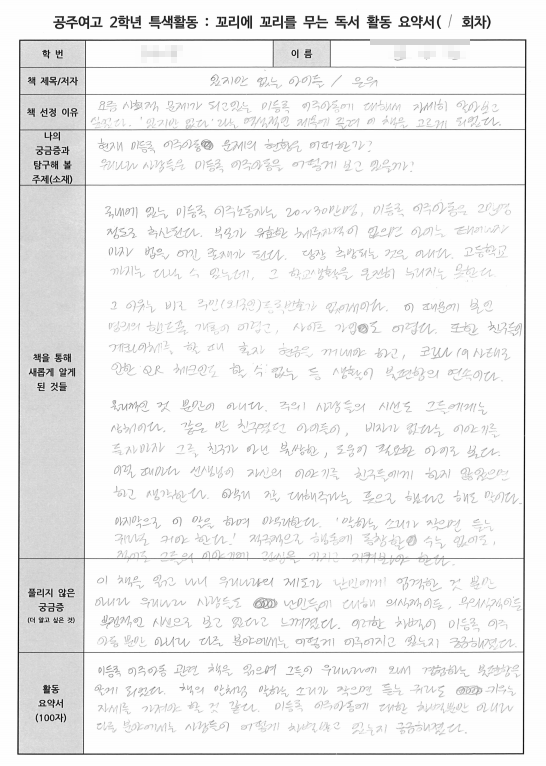 공주여고 2학년 특색활동 : 꼬리에 꼬리를 무는 독서 활동 요약서( / 회차)
학 번
이 름
책 제목/저자
있지만 없는 아이들 / 은유
책 선정 이유
요즘 사회적 문제가 되고있는 미등록 이주아동에 대해서 자세히 알아보고
싶었다. '있지만 없다'라는 역설적인 제목에 끌려 이 책을 고르게 되었다.
나의
궁금증과
탐구해 볼
주제(소재)
현재 미등록 이주아동 문제의 현황은 어떠한가?
우리나라 사람들은 미등록 이주아동을 어떻게 보고 있을까?
책을 통해
새롭게 알게
된 것들
국내에 있는 미등록 이주노동자는 20~30만명, 미등록 이주아동은 2만명
정도로 추산된다. 부모가 유효한 체류자격이 없으면 아이는 태어나자
마자 법을 어긴 존재가 된다. 당장 추방되는 것은 아니다. 고등학교
까지는 다닐 수 있는데, 그 학교생활을 온전히 누리지는 못한다.
그 이유는 바로 주민(외국인)등록번호가 없어서이다. 이 때문에 본인
명의의 핸드폰 개통이 어렵고, 사이트 가입도 어렵다. 또한 친구들이
계좌이체를 할 때 홀로 현금을 꺼내야 하고, 코로나19 사태로
인한 QR 체크인도 할 수 없는 등 생활이 불편함의 연속이다.
것 뿐만이 아니다. 주위 사람들의 시선도 그들에게는
상처이다. 같은 반 친구였던 아이들이, 비자가 없다는 이야기를
듣자마자 그를 친구가 아닌 불쌍한, 도움이 필요한 아이로 본다.
이럴 때마다 선생님이 자신의 이야기를 친구들에게 하지 않았으면
하고 생각한다. 아무리 잘 대해주라는 뜻으로 했다고 해도 말이다.
마지막으로 이 말을 하며 마무리한다. '말하는 소리가 작으면 듣는
귀라도 커야 한다.' 적극적으로 행동에 동참할 수는 없어도,
적어도 그들의 이야기에 관심을 가지고 지켜봐야 한다.
풀리지 않은
궁금증
(더 알고 싶은 것)
이 책을 읽고 나니 우리나라의 제도가 난민에게 엄격한 것 뿐만
아니라 우리나라 사람들도 난민들에 대해 의식적이든, 무의식적이든
부정적인 시선으로 보고 있다고 느껴졌다. 이러한 차별이 미등록 이주
아동 뿐만 아니라 다른 분야에서는 어떻게 이루어지고 있는지 궁금해졌다.
활동
요약서
(100자)
미등록 이주아동 관련 책을 읽으며 그들이 우리나라에 와서 경험하는 불편함을
알게 되었다. 책의 말처럼 말하는 소리가 작으면 듣는 귀라도 키우는
자세를 가져야 할 것 같다. 미등록 이주아동에 대한 차별뿐만 아니라
다른 분야에서는 사람들이 어떻게 차별받고 있는지 궁금해졌다.